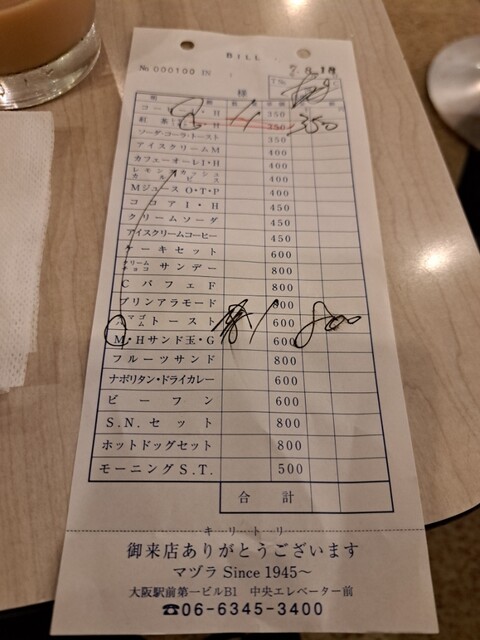 BILL
No 000100 IN
7.8.18
様
コーヒー I・H 350
紅茶 I・H 350 1 350
ソーダ・コーラ・トースト 350
アイスクリームM 400
カフェーオーレI・H 400
レモンスカッシュ カルピス 400
Mジュース O・T・P 400
ココアI・H 450
クリームソーダ 450
アイスクリームコーヒー 450
ケーキセット 600
クリーム チョコ サンデー 800
CパフェF 800
プリンアラモード 800
ハム タマゴ トースト 600
M・Hサンド玉・G 600 1 800
フルーツサンド 800
ナポリタン・ドライカレー 600
ビーフン 600
S.N.セット 800
ホットドッグセット 800
モーニングS.T. 500
合計
キリトリ
御来店ありがとうございます
マヅラ Since 1945〜
大阪駅前第一ビルB1 中央エレベーター前
☎06-6345-3400